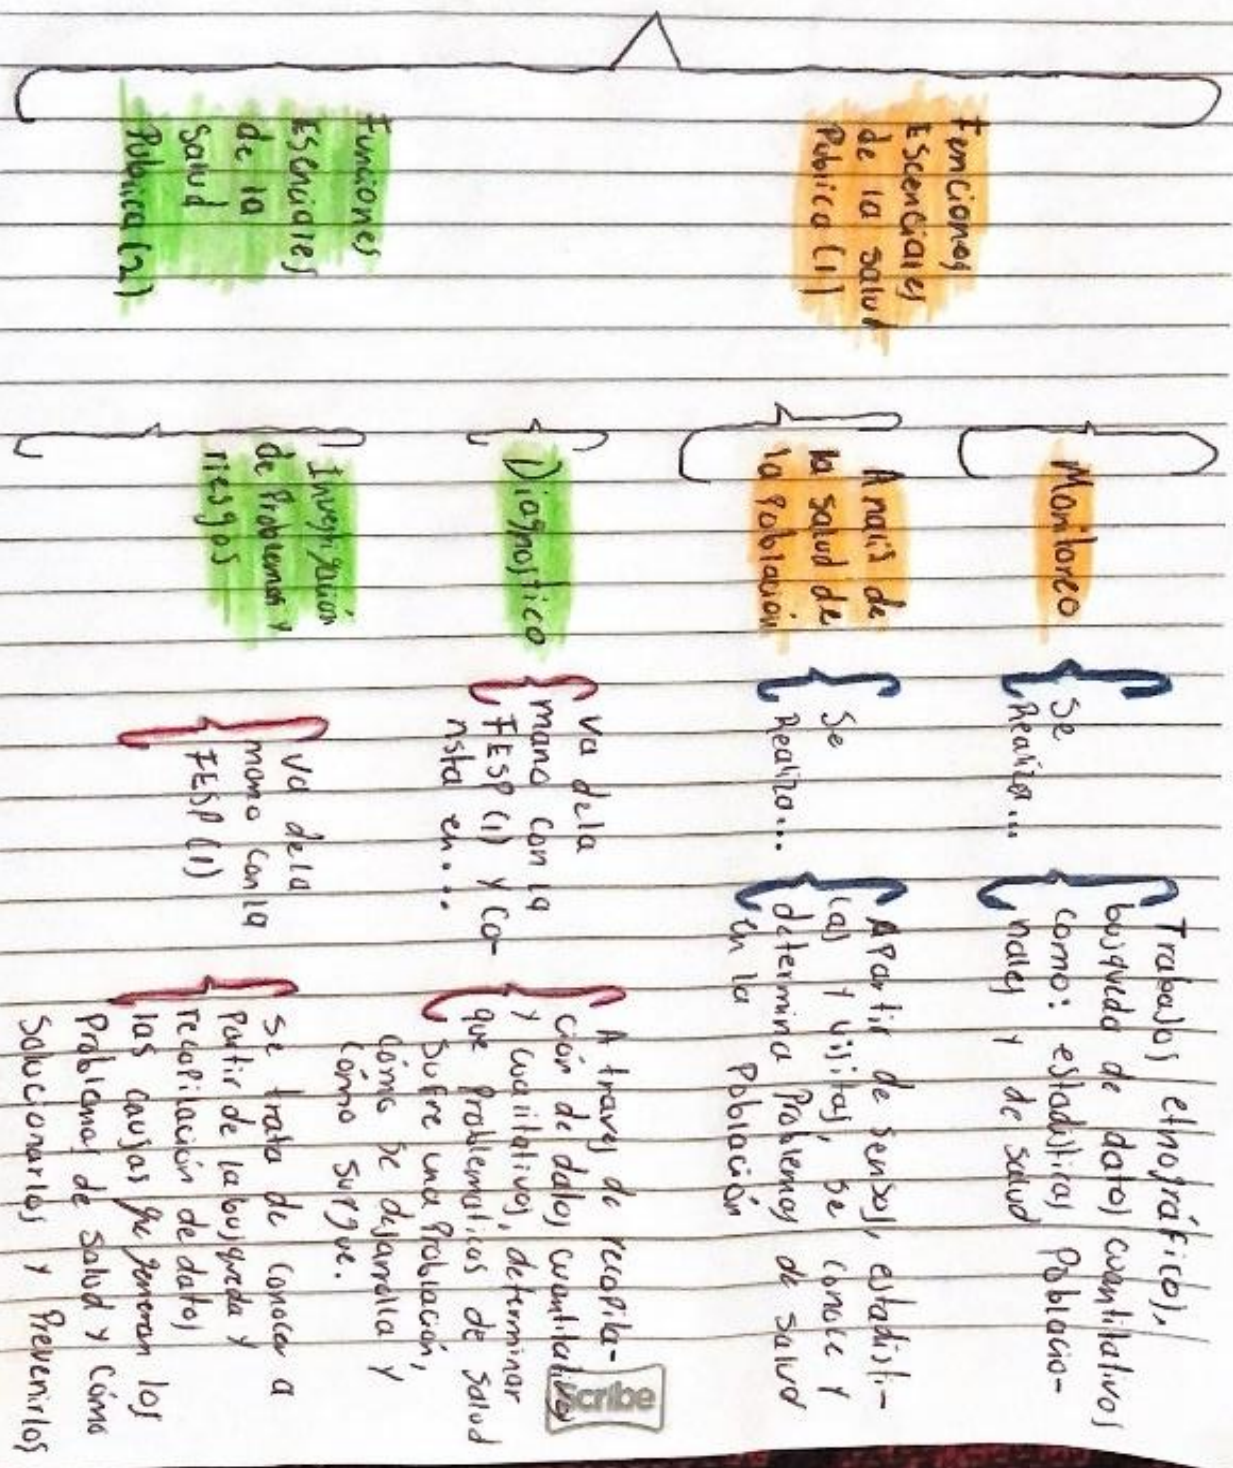 Funciones
Escenciales
de la salud
Publica (1)
Monitoreo
Se
Realiza...
Trabajos etnográficos,
busqueda de datos cuantitativos
como: estadisticas Poblacio-
nales y de salud
Analis de
la salud de
la Población
Se
Realiza...
Apartir de sensos, estadisti-
cas y visitas, se conoce y
determina Problemas de salud
en la Población
Funciones
Esenciales
de la
Salud
Publica (2)
Diagnostico
Va dela
mano con la
FESP (1) y co-
nsta en...
A traves de recopila-
ción de datos cuantitativos
y cualitativos, determinar
que Problematicas de salud
sufre una Población,
cómo se desarrolla y
cómo surgue.
Investigación
de Problemas y
riesgos
Va dela
mano con la
FESP (1)
Se trata de conocer a
Partir de la busqueda y
recopilación de datos
las causas que generan los
Problemas de salud y cómo
Solucionarlos y Prevenirlos
Scribe